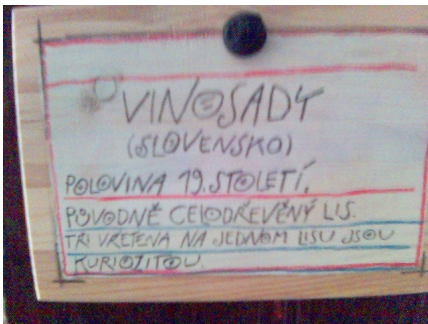 VINOSADY
(SLOVENSKO)
POLOVINA 19. STOLETÍ.
PŮVODNĚ CELODŘEVĚNÝ LIS.
TŘI VŘETENA NA JEDNOM LISU JSOU
KURIOZITOU